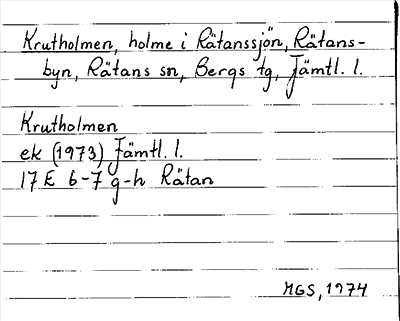 Krutholmen, holme i Rätanssjön, Rätans-
byn, Rätans sn, Bergs tg, Jämtl. l.
Krutholmen
ek (1973) Jämtl. l.
17E 6-7 g-h Rätan
MGS, 1974